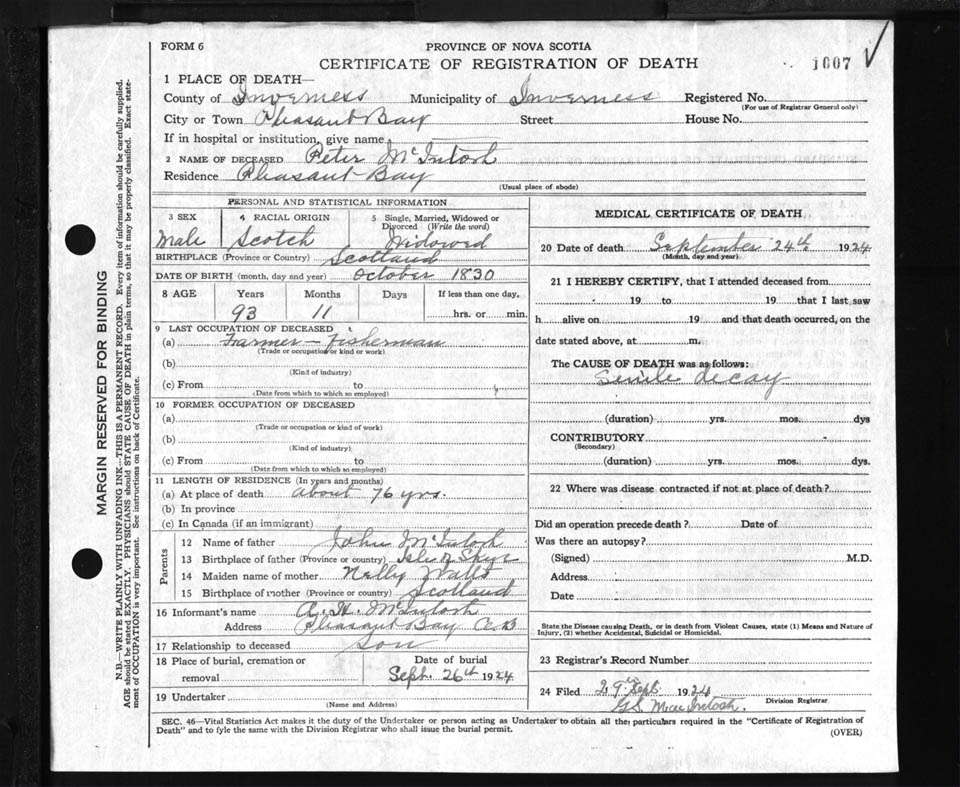 FORM 6
PROVINCE OF NOVA SCOTIA
CERTIFICATE OF REGISTRATION OF DEATH
1007 ✓
1 PLACE OF DEATH—
County of Inverness Municipality of Inverness Registered No.
(For use of Registrar General only)
City or Town Pleasant Bay Street House No.
If in hospital or institution, give name
2 NAME OF DECEASED Peter McIntosh
Residence Pleasant Bay
(Usual place of abode)
PERSONAL AND STATISTICAL INFORMATION
3 SEX 4 RACIAL ORIGIN 5 Single, Married, Widowed or Divorced (Write the word)
Male Scotch Widowed
BIRTHPLACE (Province or Country) Scotland
DATE OF BIRTH (month, day and year) October 1830
8 AGE Years Months Days If less than one day,
93 11 hrs. or min.
9 LAST OCCUPATION OF DECEASED
(a) Farmer - fisherman
(Trade or occupation or kind or work)
(b)
(Kind of industry)
(c) From to
(Date from which to which so employed)
10 FORMER OCCUPATION OF DECEASED
(a)
(Trade or occupation or kind of work)
(b)
(Kind of industry)
(c) From to
(Date from which to which so employed)
11 LENGTH OF RESIDENCE (In years and months)
(a) At place of death about 76 yrs.
(b) In province
(c) In Canada (if an immigrant)
Parents
12 Name of father John McIntosh
13 Birthplace of father (Province or country) Isle of Skye
14 Maiden name of mother Nelly Watts
15 Birthplace of mother (Province or country) Scotland
16 Informant's name A. H. McIntosh
Address Pleasant Bay C.B
17 Relationship to deceased son
18 Place of burial, cremation or removal Date of burial
Sept. 26th 1924
19 Undertaker
(Name and Address)
MEDICAL CERTIFICATE OF DEATH
20 Date of death September 24th 1924
(Month, day and year)
21 I HEREBY CERTIFY, that I attended deceased from
19 to 19 that I last saw
h alive on 19 and that death occurred, on the
date stated above, at m.
The CAUSE OF DEATH was as follows:
Senile decay
(duration) yrs. mos. dys
CONTRIBUTORY
(Secondary)
(duration) yrs. mos. dys.
22 Where was disease contracted if not at place of death?
Did an operation precede death? Date of
Was there an autopsy?
(Signed) M.D.
Address
Date
State the Disease causing Death, or in death from Violent Causes, state (1) Means and Nature of
Injury, (2) whether Accidental, Suicidal or Homicidal.
23 Registrar's Record Number
24 Filed Sept. 1924
G.S. MacIntosh
Division Registrar
SEC. 46—Vital Statistics Act makes it the duty of the Undertaker or person acting as Undertaker to obtain all the particulars required in the "Certificate of Registration of
Death" and to fyle the same with the Division Registrar who shall issue the burial permit.
(OVER)
MARGIN RESERVED FOR BINDING
N.B.—WRITE PLAINLY WITH UNFADING INK—THIS IS A PERMANENT RECORD. Every item of information should be carefully supplied.
AGE should be stated EXACTLY. PHYSICIANS should STATE CAUSE OF DEATH in plain terms, so that it may be properly classified. Exact state-
ment of OCCUPATION is very important. See instructions on back of Certificate.